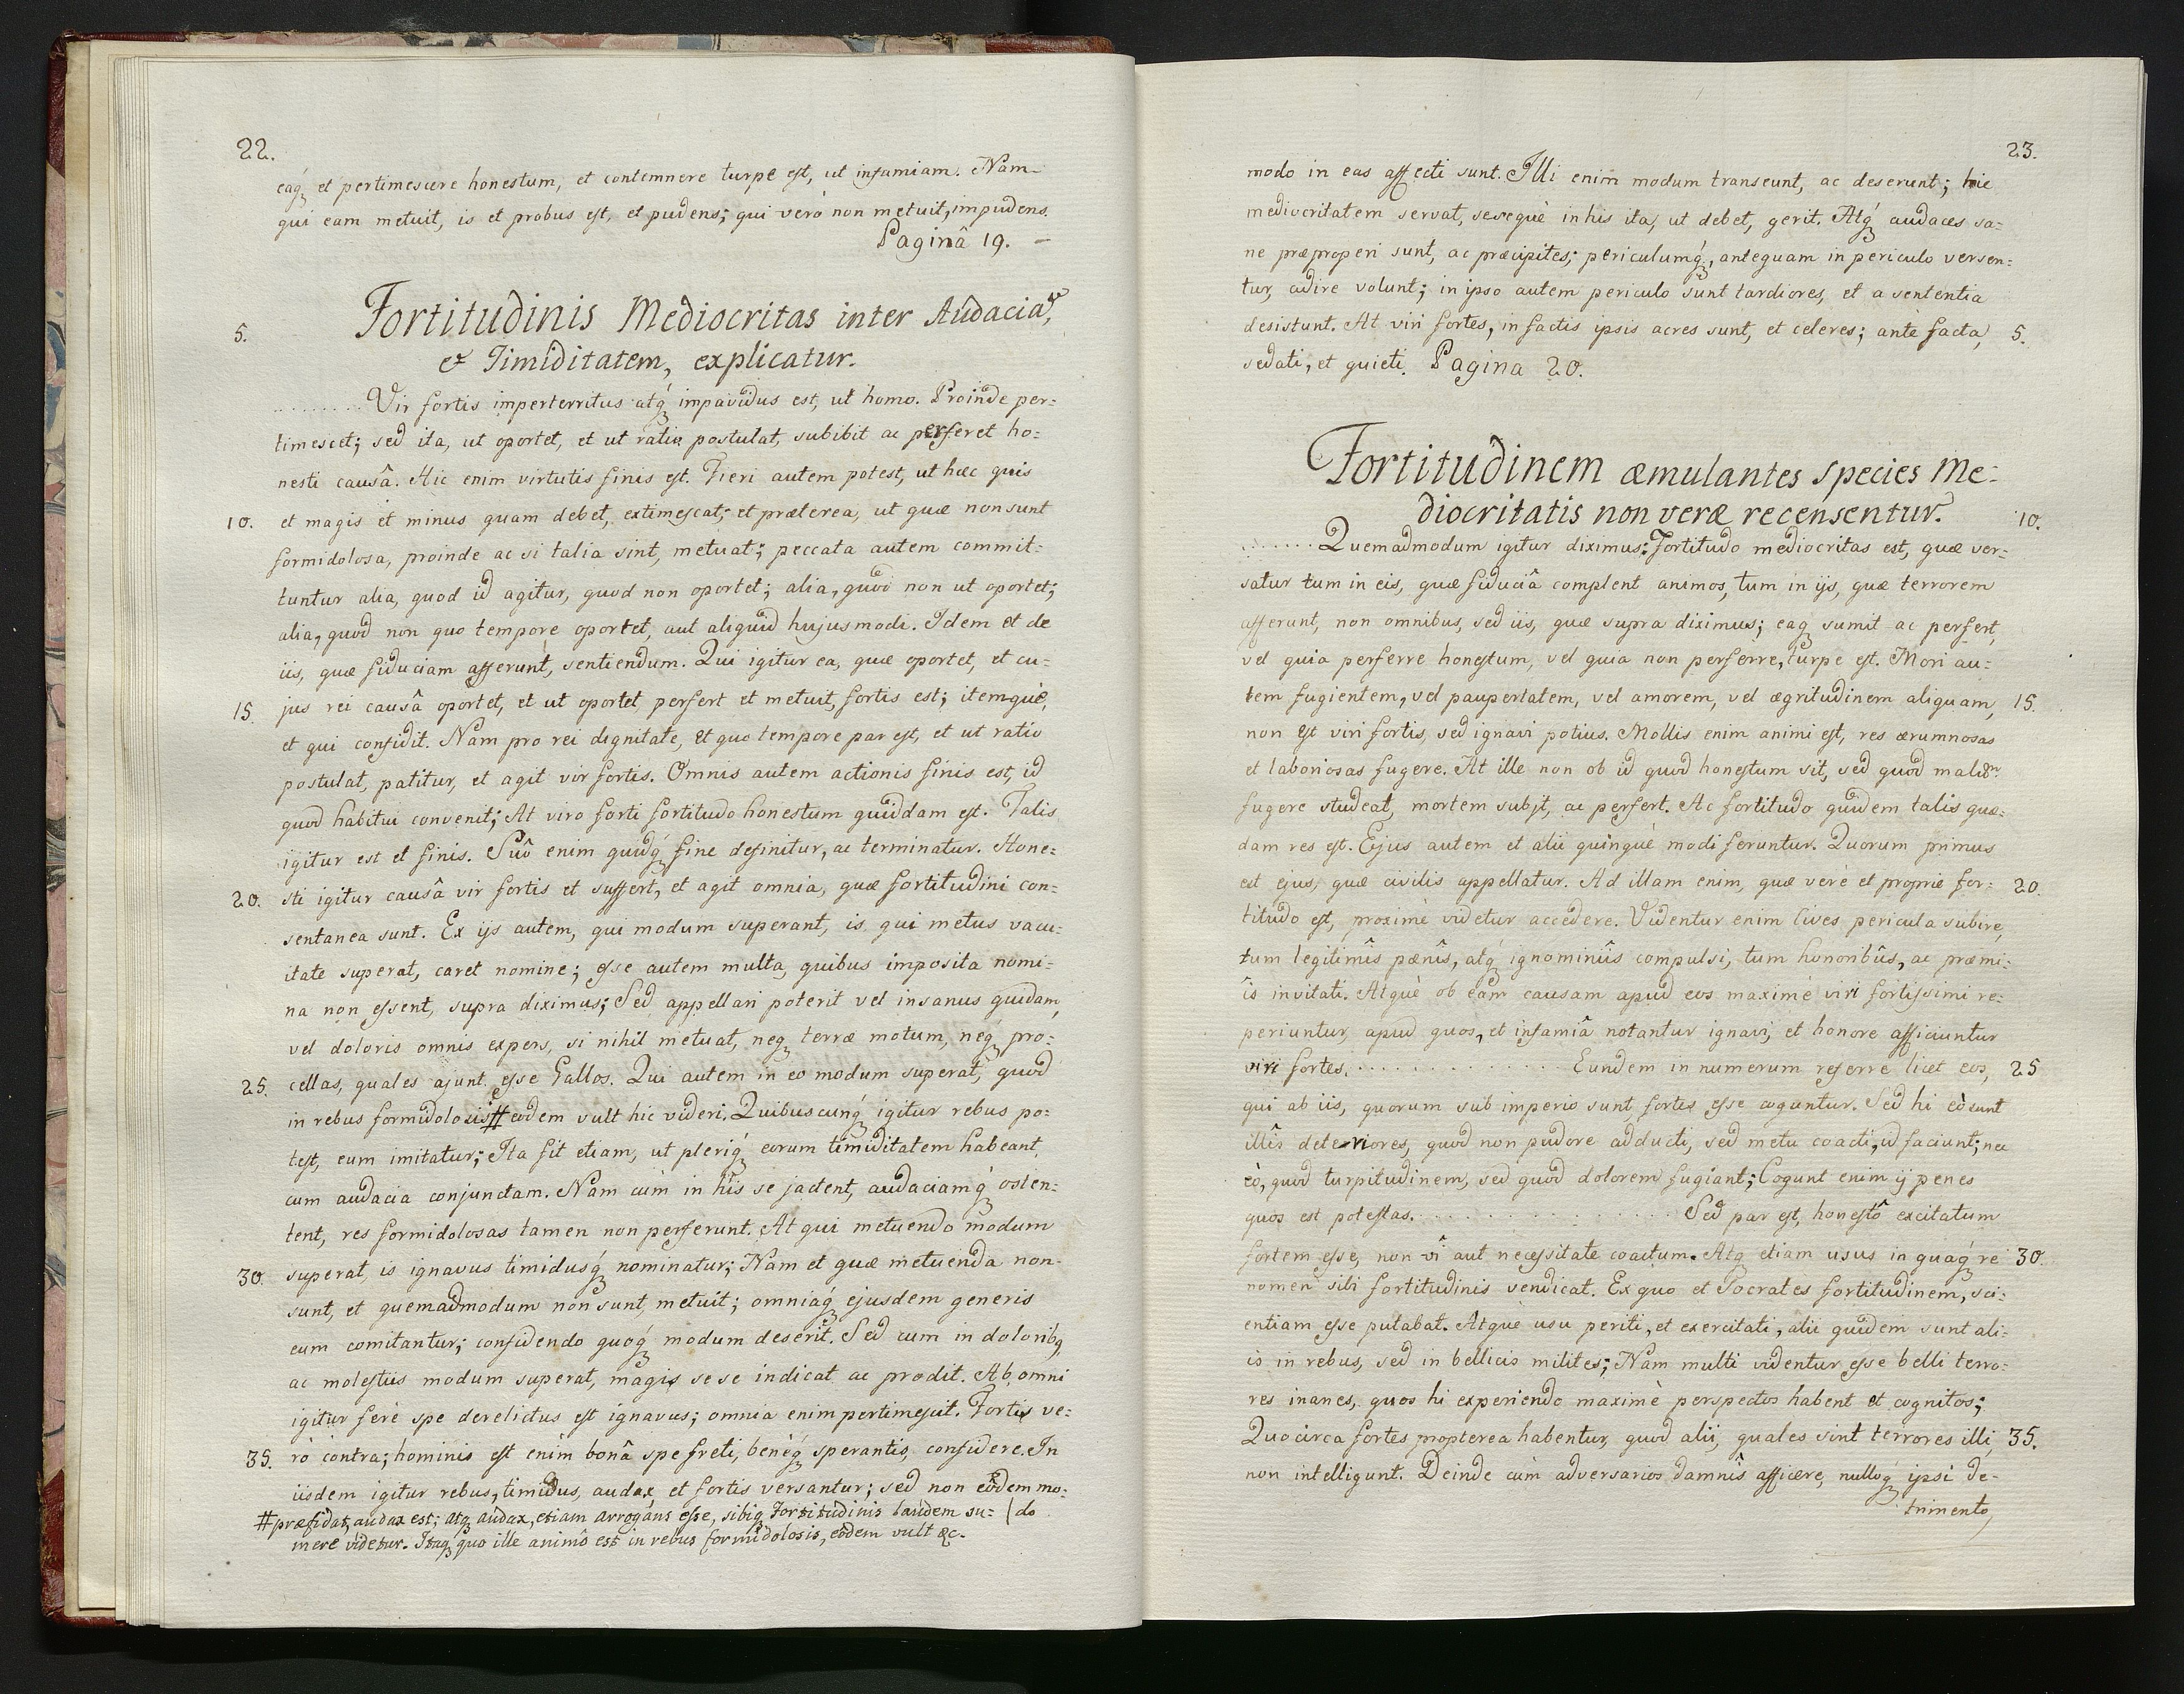 22.
eaq́ꝫ et pertimescere honestum, et contemnere turpe est, ut infamiam. Nam
qui eam metuit, is et probus est, et pudens; qui verò non metuit, impudens.
Paginâ 19. –
Fortitudinis Mediocritas inter Audaciã,
5.
& Timiditatem, explicatur.
......... Vir fortis imperterritus atq́ꝫ impavidus est, ut homo. Proinde per=
timescet; sed ita, ut oportet, et ut ratio postulat, subibit ac perferet ho=
nesti causâ. Hic enim virtutis finis est. Fieri autem potest, ut hæc quis
10. et magis et minus quam debet, extimescat; et præterea, ut quæ non sunt
formidolosa, proinde ac si talia sint, metuat; peccata autem commit=
tuntur alia, quod id agitur, quod non oportet; alia, quod non ut oportet;
alia, quod non quo tempore oportet, aut aliquid hujusmodi. Idem et de
iis, quæ fiduciam afferunt, sentiendum. Qui igitur ea, quæ oportet, et cu=
15. jus rei causâ oportet, et ut oportet perfert et metuit, fortis est; itemquè,
et qui confidit. Nam pro rei dignitate, et quo tempore par est, et ut ratio
postulat, patitur, et agit vir fortis. Omnis autem actionis finis est, id
quod habitui convenit; At viro forti fortitudo honestum quiddam est. Talis
igitur est et finis. Suô enim quidq́ꝫ fine definitur, ac terminatur. Hone=
20. sti igitur causâ vir fortis et suffert, et agit omnia, quæ fortitudini con=
sentanea sunt. Ex ijs autem, qui modum superant, is, qui metus vacu=
itate superat, caret nomine; esse autem multa, quibus imposita nomi=
na non essent, supra diximus; Sed appellari poterit vel insanus quidam,
vel doloris omnis expers, si nihil metuat, neqꝫ terræ motum, neqꝫ pro=
25. cellas, quales ajunt esse Gallos. Qui autem in eo modum superat, quod
in rebus formidolosis # eodem vult hic videri. Quibuscunq́ꝫ igitur rebus po=
test, eum imitatur; Ita fit etiam, ut pleriq́ꝫ eorum timiditatem habeant,
cum audacia conjunctam. Nam cùm in hîs se jactent, audaciamq́ꝫ osten=
tent, res formidolosas tamen non perferunt. At qui metuendo modum
30. superat, is ignavus timidusq́ꝫ nominatur; Nam et quæ metuenda non
sunt, et quemadmodum non sunt, metuit; omniaq́ꝫ ejusdem generis
eum comitantur; confidendo quoq́ꝫ modum deserit. Sed cum in doloribꝫ
ac molestiis modum superat, magis sese indicat ac prodit. Ab omni
igitur ferè spe derelictus est ignavus; omnia enim pertimescit. Fortis ve=
35. rò contra; hominis est enim bonâ spe freti, benèq́ꝫ sperantis, confidere. In
iisdem igitur rebus, timidus, audax et fortis versantur; sed non eôdem mo=
# præfidat, audax est; atqꝫ audax, etiam arrogans esse, sibiqꝫ Fortitudinis laudem su= / do
mere videtur. Itaqꝫ quo ille animô est in rebus formidolosis, eôdem vult &c.
23.
modo in eas affecti sunt. Illi enim modum transeunt, ac deserunt; hic
mediocritatem servat, sesequè in his ita, ut debet, gerit. Atq́ꝫ audaces sa=
ne præproperi sunt, ac præcipites; periculumq́ꝫ, antequam in periculo versen=
tur, adire volunt; in ipso autem periculo sunt tardiores, et a sententia
desistunt. At viri fortes, in factis ipsis acres sunt, et celeres; antè facta, 5.
sedati, et quieti. Pagina 20.
Fortitudinem æmulantes species Me=
diocritatis non veræ recensentur. 10.
....... Quemadmodum igitur diximus: Fortitudo mediocritas est, quæ ver=
satur tum in eis, quæ fiduciâ complent animos, tum in ijs, quæ terrorem
afferunt, non omnibus, sed iis, quæ supra diximus; eaqꝫ sumit ac perfert,
vel quia perferre honestum, vel quia non perferre, turpe est. Mori au=
tem fugientem, vel paupertatem, vel amorem, vel ægritudinem aliquam, 15.
non est viri fortis, sed ignavi potius. Mollis enim animi est, res ærumnosas
et laboriosas fugere. At ille non ob id quod honestum sit, sed quod malũ
fugere studeat, mortem subjt, ac perfert. Ac fortitudo quidem talis quæ=
dam res est. Ejus autem et alii quinquè modi feruntur. Quorum primus
est ejus, quæ civilis appellatur. Ad illam enim, quæ verè et propriè for= 20.
titudo est, proximè videtur accedere. Videntur enim Cives pericula subire,
tum legitimîs pœnîs, atq́ꝫ ignominiîs compulsi, tum honoribûs, ac præmi=
îs invitati. Atquè ob eam causam apud eos maximè viri fortissimi re=
periuntur, apud quos, et infamiâ notantur ignavi, et honore afficiuntur
viri fortes. . . . . . . . . . . . . . . Eundem in numerum referre licet eos, 25
qui ab iis, quorum sub imperio sunt fortes esse coguntur. Sed hi eò sunt
illîs deteriores, quod non pudore adducti, sed metu coacti, id faciunt; nec
eò, quod turpitudinem, sed quod dolorem fugiant; Cogunt enim ij penes
quos est potestas. . . . . . . . . . . . . . . . Sed par est, honestô excitatum
fortem esse, non vî aut necessitate coactum. Atqꝫ etiam usus in quaq́ꝫ re 30.
nomen sibi fortitudinis vendicat. Ex quo et Socrates fortitudinem, sci=
entiam esse putabat. Atquè usu periti, et exercitati, alii quidem sunt ali=
is in rebus, sed in bellicis milites; Nam multi videntur esse belli terro=
res inanes, quos hi experiendo maximè perspectos habent et cognitos;
Quocirca fortes propterea habentur, quod alii, quales sint terrores illi, 35.
non intelligunt. Deinde cùm adversarios damnîs afficere, nulloq́ꝫ ipsi de=
trimento,